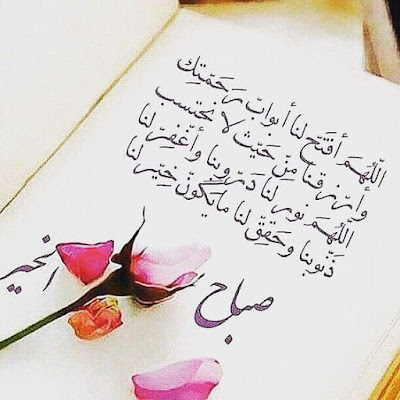 اللّهُمَ أفتَحْ لنا أبوابّ رَحَمّتِك
وأرْزقنا مِنّ حَيّثُ لا نحتسب
اللهُمَ نور لنا دَرّوبنا وأغْفِرّ لنا
ذَنّوبنا وحَقِقّ لنا مايَكُونّ خِيّر لنا
صباح الخير